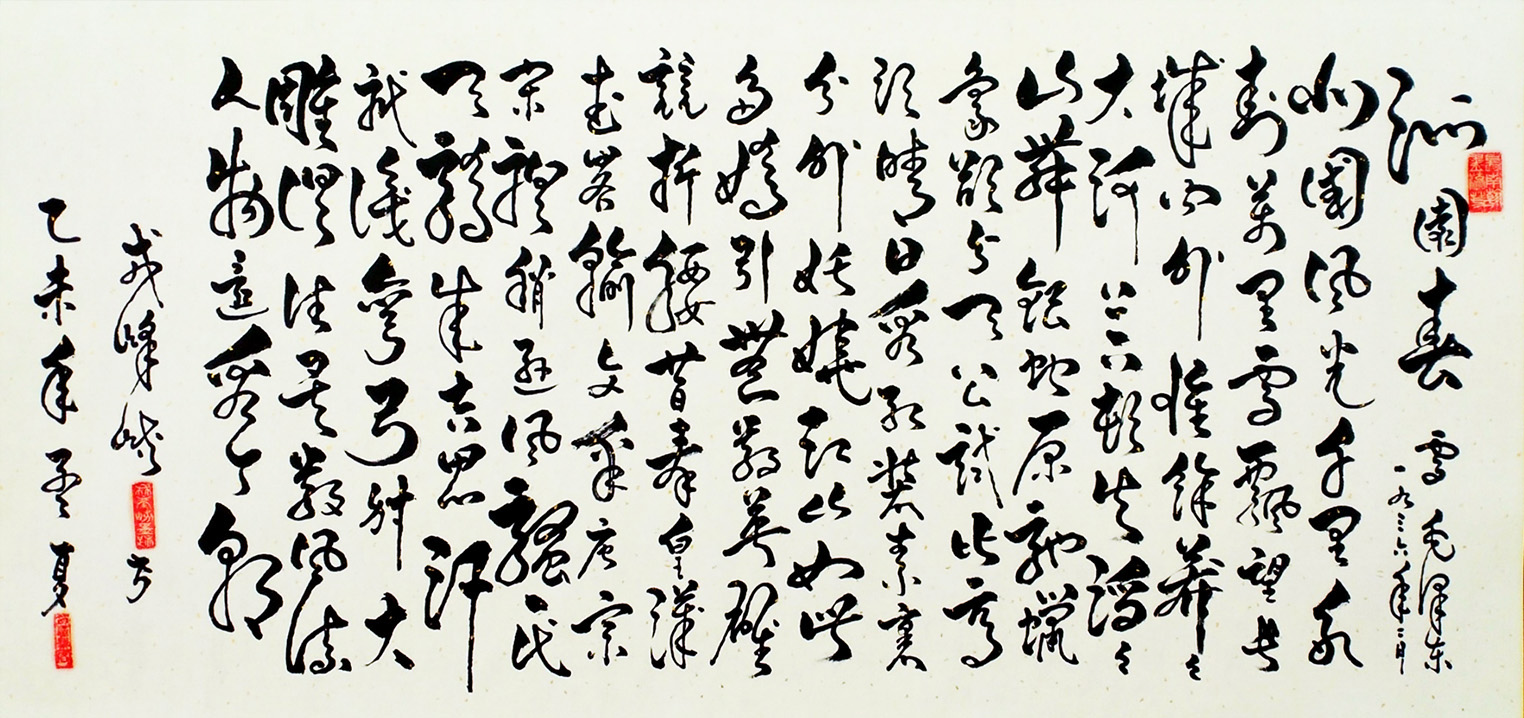 沁園春 雪 毛澤东
一九三六年二月
北國風光千里冰
封萬里雪飄望长
城内外惟餘莽々
大河上下頓失滔々
山舞銀蛇原馳蠟
象欲与天公試比高
須晴日看紅裝素裹
分外妖嬈江山如此
多嬌引無數英雄
競折腰昔秦皇漢
武略輸文采唐宗
宋祖稍遜風騷一代
天驕成吉思汗
只識彎弓射大
雕俱往矣數風流
人物還看今朝
书
乙未年孟夏